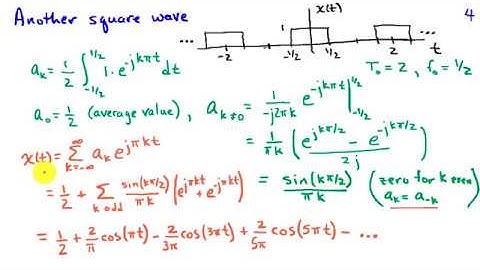 Another square wave
x(t)
4
...
1
...
-2
-1/2
1/2
2
t
T₀ = 2 , f₀ = 1/2
aₖ = 1/2 ∫_{-1/2}^{1/2} 1 · e^{-jkπt} dt
a₀ = 1/2 (average value), a_{k≠0} = 1/(-j2πk) e^{-jkπt} |_{-1/2}^{1/2}
= 1/(πk) ( (e^{jkπ/2} - e^{-jkπ/2}) / 2j )
x(t) = ∑_{k=-∞}^{∞} aₖ e^{jπkt}
= 1/2 + ∑_{k odd} sin(kπ/2)/(πk) (e^{jπkt} + e^{-jπkt})
= sin(kπ/2)/(πk) (zero for k even) aₖ = a₋ₖ
= 1/2 + 2/π cos(πt) - 2/3π cos(3πt) + 2/5π cos(5πt) - ...